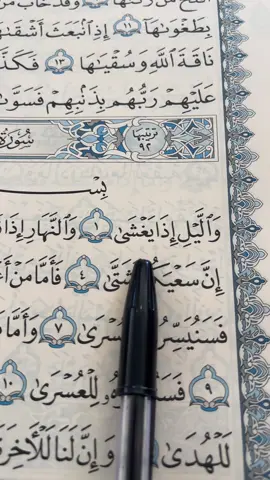 أَفْلَحَ مَن زَكَّىٰهَا ۝٩ وَقَدْ خَابَ مَن
بِطَغْوَىٰهَآ ۝١١ إِذِ ٱنۢبَعَثَ أَشْقَىٰهَا
نَاقَةَ ٱللَّهِ وَسُقْيَـٰهَا ۝١٣ فَكَذَّ
عَلَيْهِمْ رَبُّهُم بِذَنۢبِهِمْ فَسَوَّىٰ
ترتيبها ٩٢ سُورَةُ
بِسْ
وَٱلَّيْلِ إِذَا يَغْشَىٰ ۝١ وَٱلنَّهَارِ إِذَا
إِنَّ سَعْيَكُمْ لَشَتَّىٰ ۝٤ فَأَمَّا مَنْ أَ
فَسَنُيَسِّرُ سْرَىٰ ۝٧ وَأَمَّا
۝٩ فَسَنُ هُۥ لِلْعُسْرَىٰ ۝١٠
لَلْهُدَىٰ وَإِنَّ لَنَا لَلْـَٔاخِرَةَ